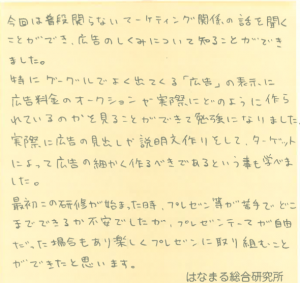 今回は普段関らないマーケティング関係の話を聞く
ことができ、広告のしくみについて知ることができ
ました。
特にグーグルでよく出てくる「広告」の表示に
広告料金のオークションや実際にどのように作ら
れているのかを見ることができて勉強になりました。
実際に広告の見出しや説明文作りをして、ターゲット
によって広告の細かく作るべきであるという事も学べま
した。
最初この研修が始まった時、プレゼン等が苦手で、どこ
までできるか不安でしたが、プレゼンテーマが自由
だった場合もあり楽しくプレゼンに取り組むこと
ができたと思います。
はなまる総合研究所